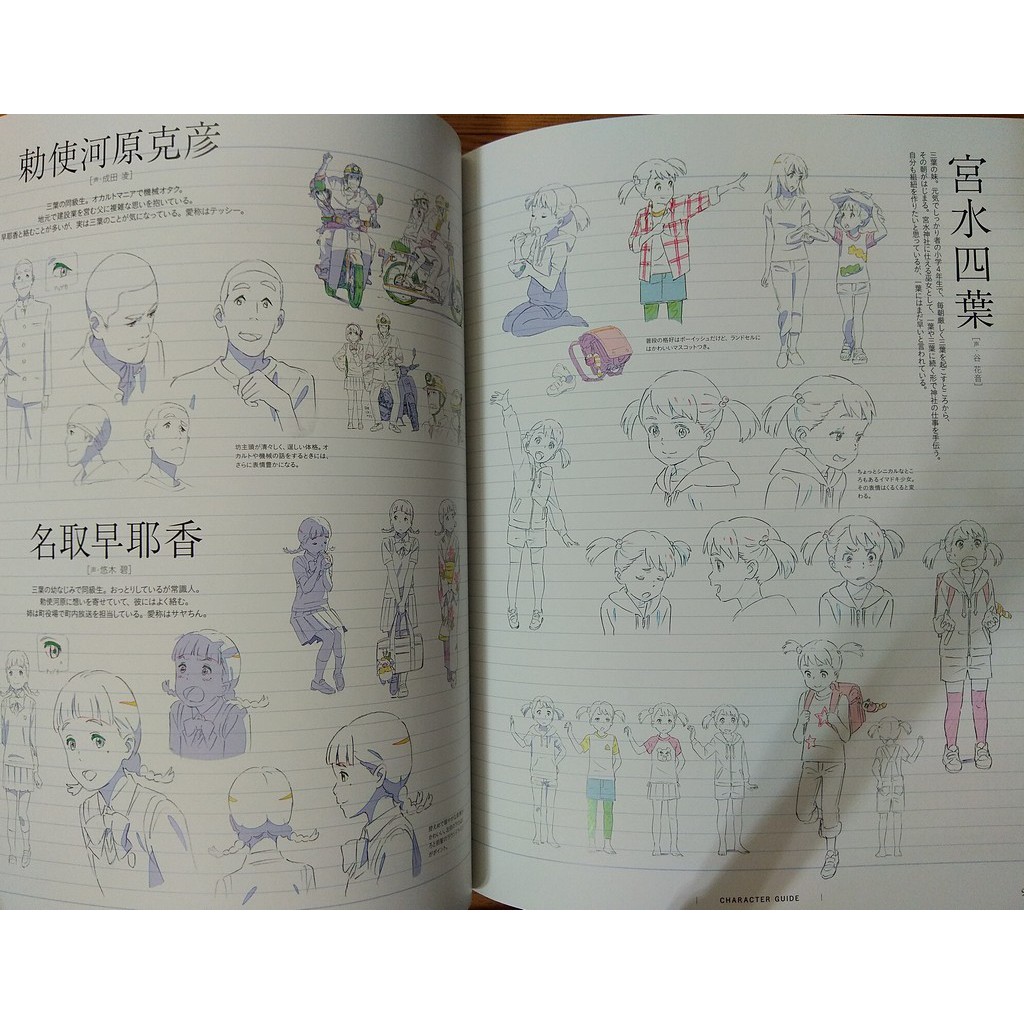 勅使河原克彦
[声・成田 凌]
三葉の同級生。オカルトマニアで機械オタク。
地元で建設業を営む父に複雑な思いを抱いている。
早耶香と絡むことが多いが、実は三葉のことが気になっている。愛称はテッシー。
坊主頭が清々しく、逞しい体格。オ
カルトや機械の話をするときには、
さらに表情豊かになる。
名取早耶香
[声・悠木 碧]
三葉の幼なじみで同級生。おっとりしているが常識人。
勅使河原に想いを寄せていて、彼にはよく絡む。
姉は町役場で町内放送を担当している。愛称はサヤちん。
宮水四葉
[声・谷 花音]
三葉の妹。元気でしっかり者の小学4年生で、毎朝厳しく三葉を起こすところから、
その朝がはじまる。宮水神社に仕える巫女として、一葉や三葉に続く形で神社の仕事を手伝う。
自分も組紐を作りたいと思っているが、一葉にはまだ早いと言われている。
普段の格好はボーイッシュだけど、ランドセルに
はかわいいマスコットつき。
ちょっとシニカルなとこ
ろもあるイマドキ少女。
その表情はくるくると変
わる。
CHARACTER GUIDE